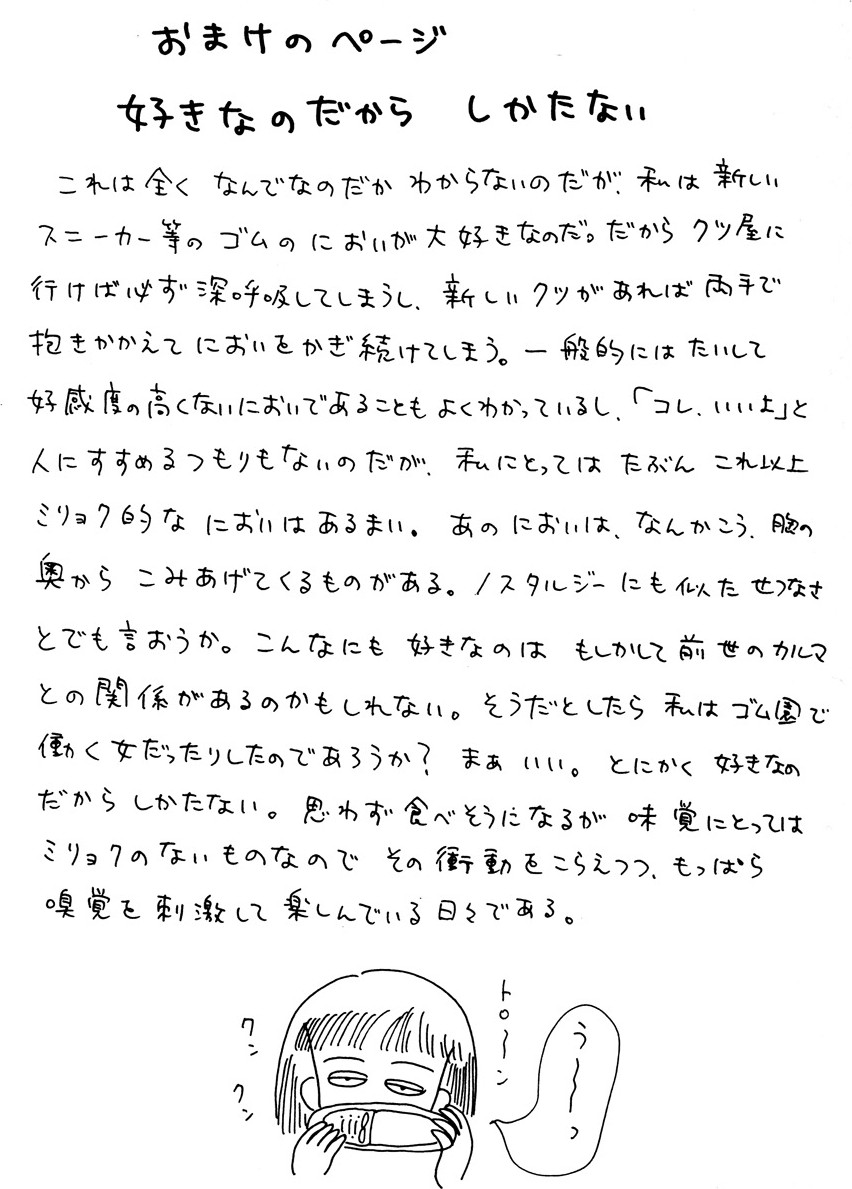 おまけのページ
好きなのだから しかたない
これは全く なんでなのだか わからないのだが、私は 新しい
スニーカー等の ゴムの においが大好きなのだ。だから クツ屋に
行けば必ず 深呼吸してしまうし、新しいクツがあれば 両手で
抱きかかえて においを かぎ続けてしまう。一般的には たいして
好感度の高くないにおいであることも よくわかっているし、「コレ、いいよ」と
人にすすめるつもりもないのだが、私にとっては たぶん これ以上
ミリョク的な においは あるまい。 あの においは、なんかこう、胸の
奥から こみあげてくるものがある。ノスタルジーにも 似た せつなさ
とでも 言おうか。こんなにも 好きなのは もしかして 前世のカルマ
との関係があるのかもしれない。そうだとしたら 私は ゴム園で
働く女だったりしたのであろうか? まぁ いい。 とにかく 好きなの
だから しかたない。思わず 食べそうになるが 味覚にとっては
ミリョクのないものなので その衝動を こらえつつ、もっぱら
嗅覚を 刺激して 楽しんでいる 日々である。
クン
クン
トロ〜ン
う〜〜っ